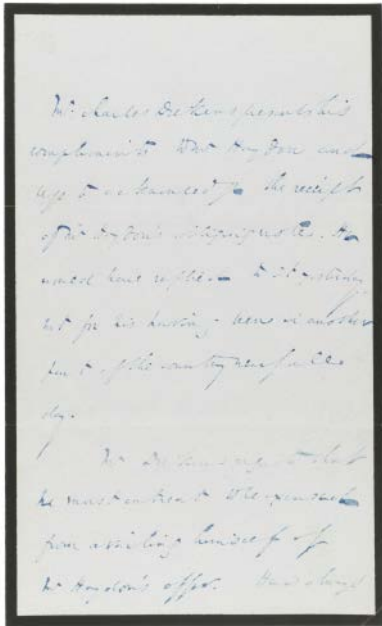 Mr. Charles Dickens presents his
compliments to Mr Haydon and
begs to acknowledge the receipt
of Mr Haydon's obliging note. He
would have replied to it yesterday
but for his having been in another
part of the country near all
day.
Mr Dickens regrets that
he must entreat to be excused
from availing himself of
Mr Haydon's offer. He is always